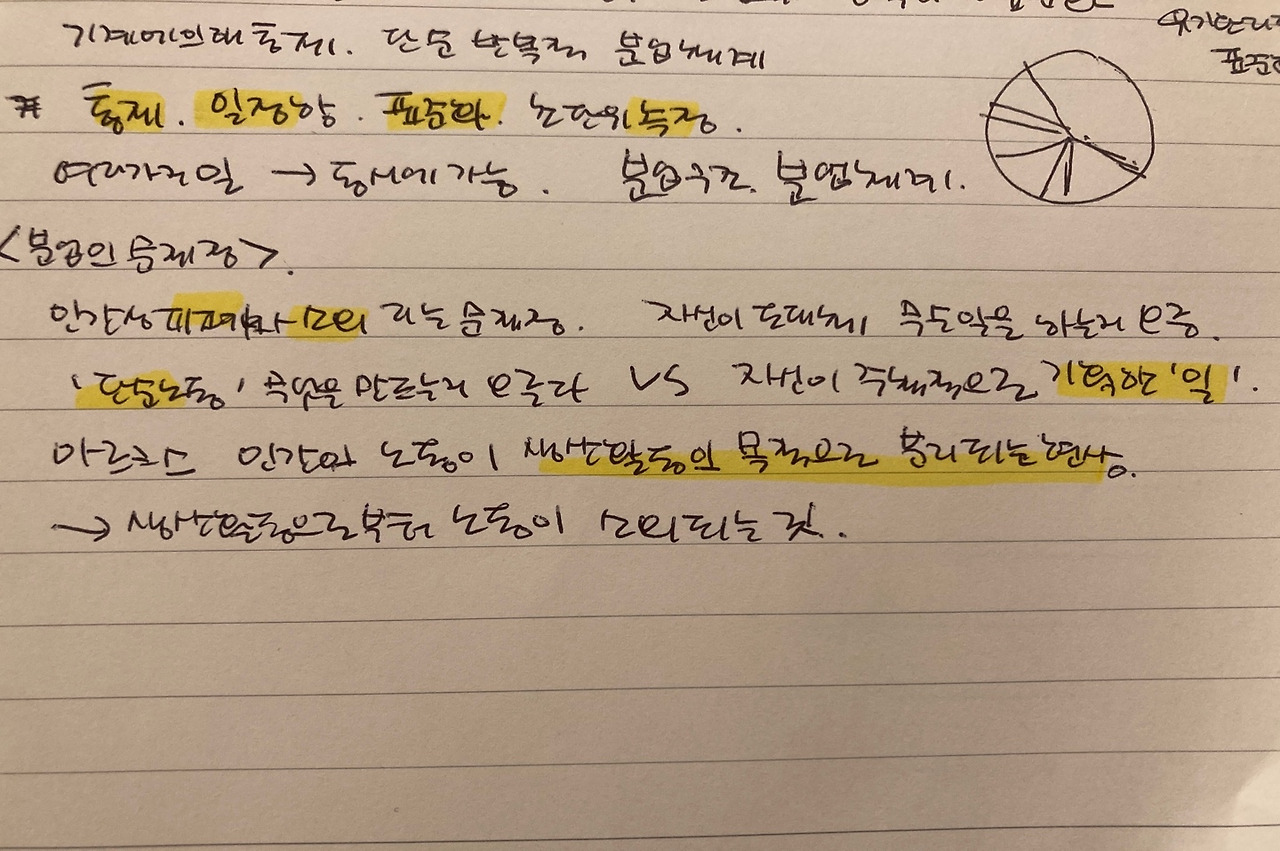 기계에의해 통제. 단순 반복적 분업체계
표준화
* 통제. 일정량. 표준화. 초단위 측정.
여러가지일 → 동시에 가능. 분업구조. 분업체계.
<분업의 문제점>.
인간성 파괴와 소외 라는 문제점. 자신이 도대체 무슨일을 하는지 모름.
'단순노동' 무엇을 만드는지 모른다 VS 자신이 주체적으로 기획한 '일'.
마르크스 인간의 노동이 생산활동의 목적으로 분리되는 현상.
→ 생산활동으로부터 노동이 소외되는 것.